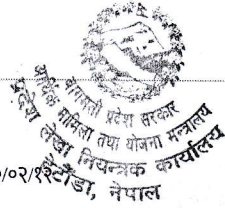 बागमती प्रदेश सरकार
आर्थिक मामिला तथा योजना मन्त्रालय
प्रदेश लेखा नियन्त्रक कार्यालय
०/०२/१२
हेटौंडा, नेपाल